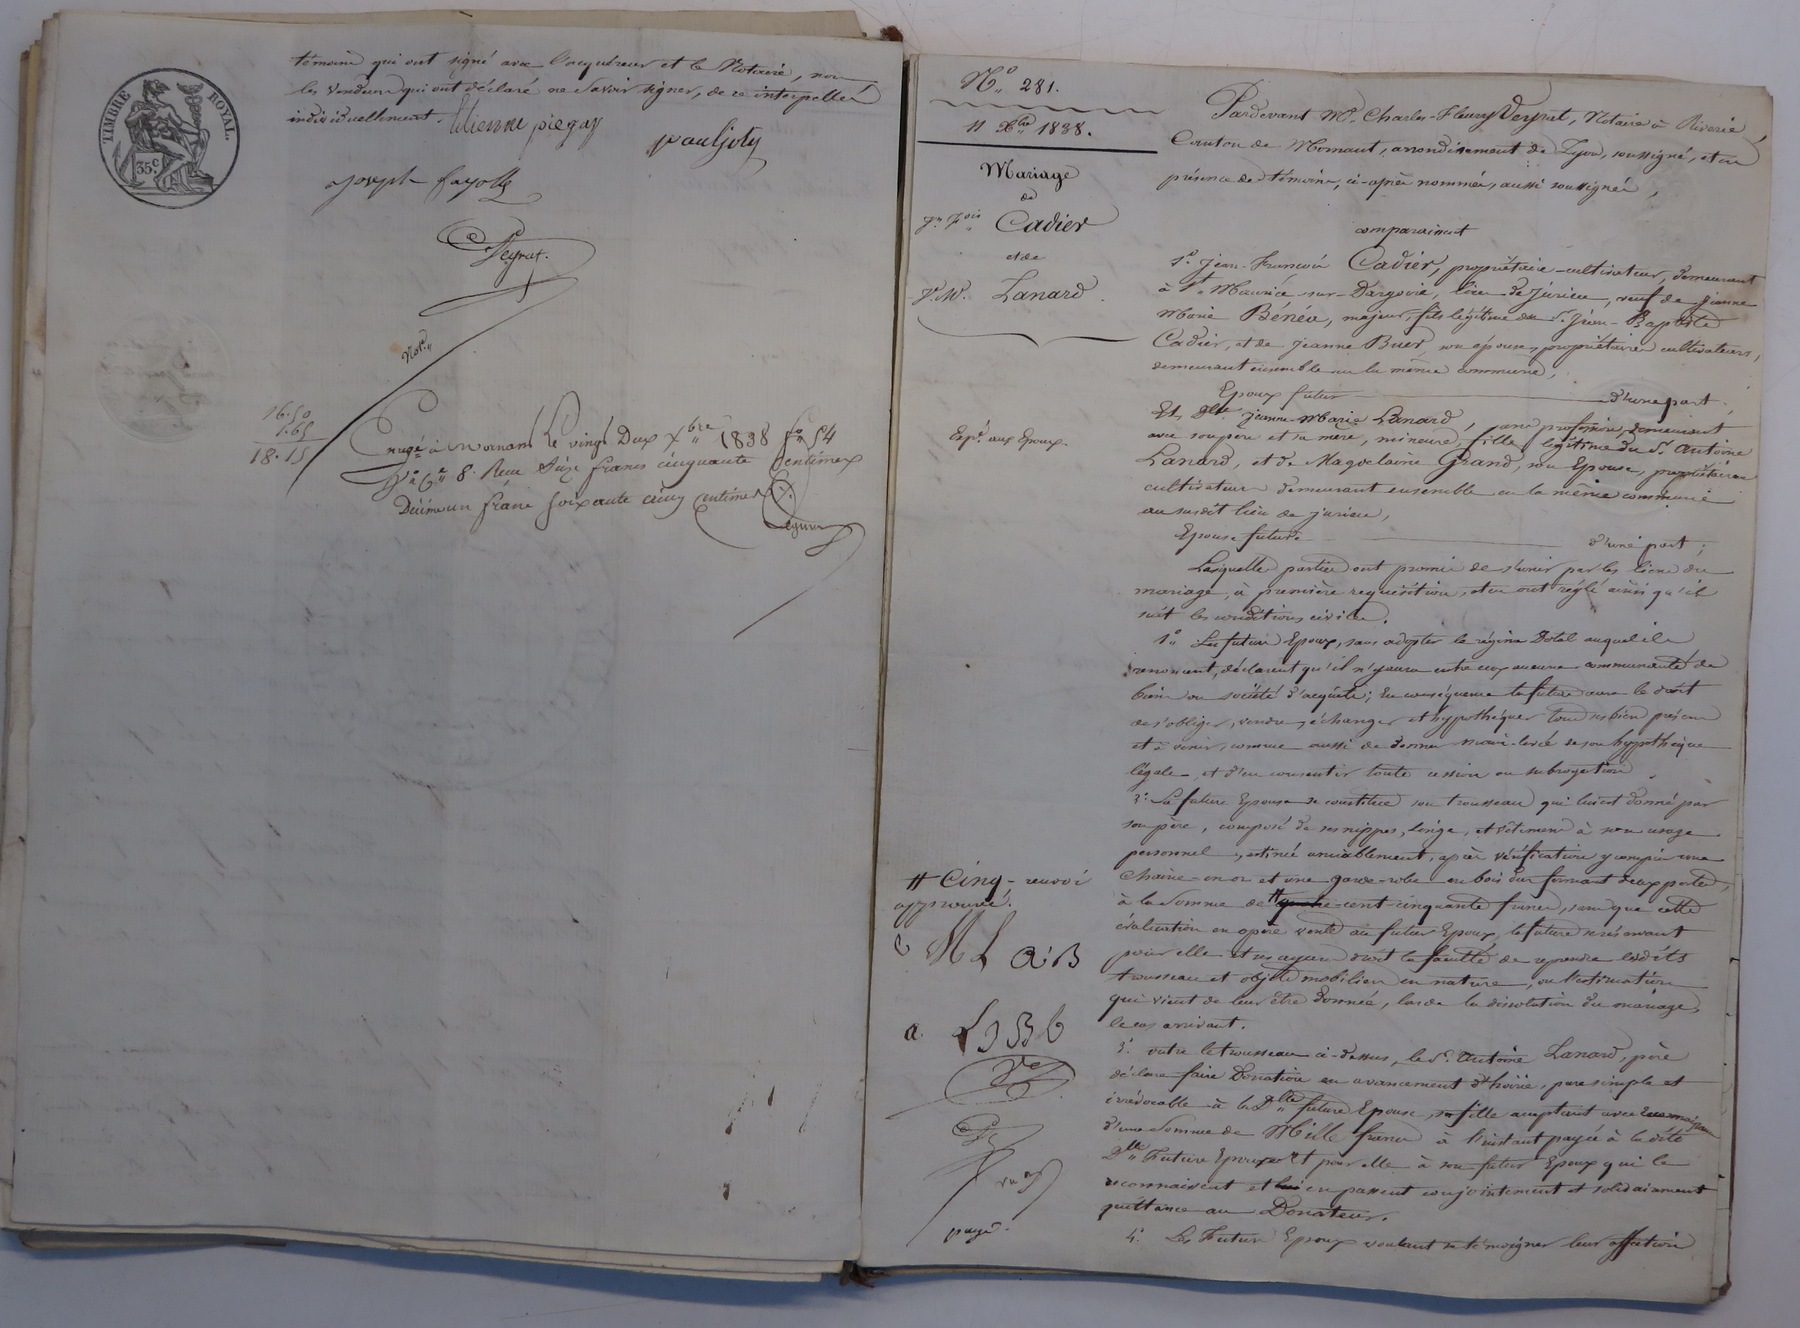 témoins qui ont signé avec l'acquéreur et le Notaire, non
les vendeurs qui ont déclaré ne savoir signer, de ce interpellés
individuellement.
TIMBRE ROYAL.
35c
Etienne piegay
paul joly
joseph fayolle
Veyrat.
Not.re
16.50
1.65
18.15
Enrgé à Mornant le vingt Deux Xbre 1838 fo 54
Vo Ce 8. Reçu Seize francs cinquante Centimes
Décime un franc soixante cinq Centimes
No 281.
11 Xbre 1838.
Mariage
de
Jn. Fois Cadier
et de
J.M. Lanard
Expn aux Epoux.
Pardevant Me Charles-Fleury Veyrat, Notaire à Riverie,
Canton de Mornant, arrondissement de Lyon, soussigné, et en
présence des témoins, ci-après nommés, aussi soussignés,
comparaissent
1o Jean-François Cadier, propriétaire-cultivateur, demeurant
à St Maurice-sur-Dargoire, lieu de Jurieu, veuf de Jeanne
Marie Bénéu, majeur, fils légitime du Sr Jean-Baptiste
Cadier, et de Jeanne Buer, son épouse, propriétaires cultivateurs,
demeurant ensemble en la même commune,
Epoux futur d'une part,
Et Dlle Jeanne-Marie Lanard, sans profession, demeurant
avec son père et sa mère, mineure, fille légitime du Sr Antoine
Lanard, et de Magdelaine Grand, son Epouse, propriétaires
cultivateurs demeurant ensemble en la même commune
au susdit lieu de jurieu,
Epouse future d'une part;
Lesquelles parties ont promis de s'unir par les liens du
mariage, à première réquisition, et en ont réglé ainsi qu'il
suit les conditions civiles.
1o Les futurs Epoux, sans adopter le régime Dotal auquel ils
renoncent, déclarent qu'il n'y aura entre eux aucune communauté de
biens ou société d'acquêts; En conséquence la future aura le droit
de s'obliger, vendre, échanger et hypothéquer tous ses biens présens
et à venir, comme aussi de donner main-levée de son hypothèque
légale, et d'en consentir toute cession ou subrogation.
2o La future Epouse se constitue son trousseau qui lui est donné par
son père, composé de ses nippes, linge, et vêtemens à son usage
personnel, estimé amiablement, après vérification y compris une
chaine-en or et une garde-robe en bois dur fermant deux portes,
à la somme de # quatre-cent-cinquante francs, sans que cette
évaluation en opère vente au futur Epoux, la future se réservant
pour elle et ses ayans droit la faculté de reprendre lesdits
trousseau et objets mobiliers en nature, ou l'estimation
qui vient de leur être donnée, lors de la dissolution du mariage,
le cas arrivant.
3o outre le trousseau ci-dessus, le Sr. Antoine Lanard, père
déclare faire Donation en avancement d'hoirie, pure simple et
irrévocable à la Dlle future Epouse, sa fille acceptant avec
d'une somme de Mille francs à l'instant payée à la dite
Dlle Future Epouse et pour elle à son futur Epoux qui le
reconnaissent et en passent conjointement et solidairement
quittance au Donateur.
4o Les Futurs Epoux voulant se témoigner leur affection
# Cinq, renvoi
approuvé.
ML
page